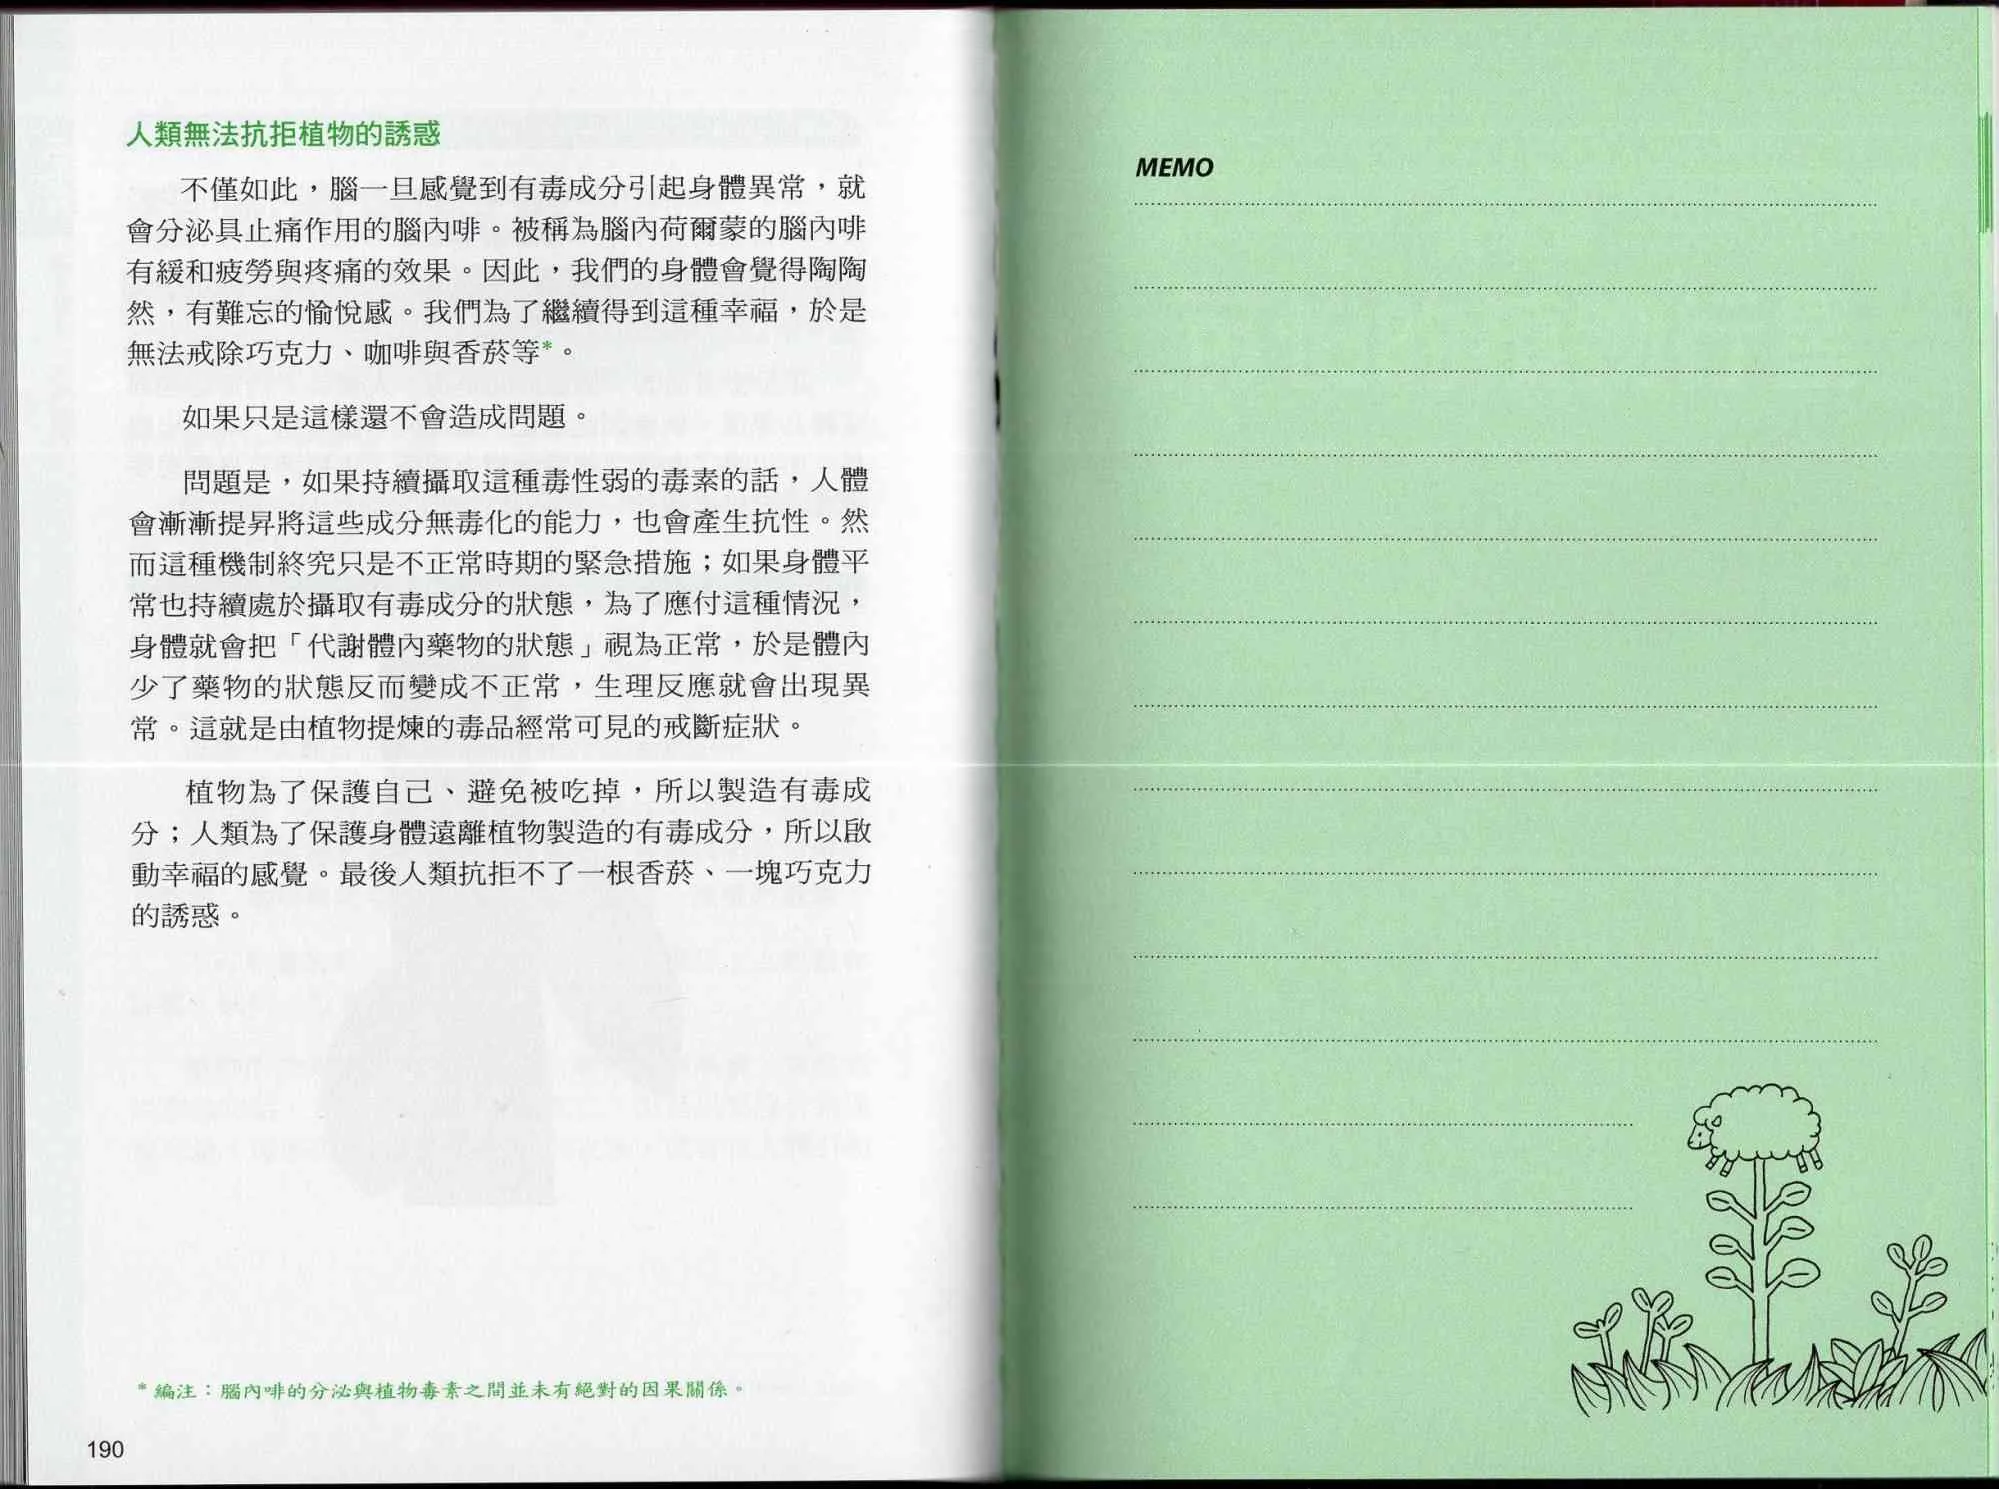 人類無法抗拒植物的誘惑
不僅如此，腦一旦感覺到有毒成分引起身體異常，就
會分泌具止痛作用的腦內啡。被稱為腦內荷爾蒙的腦內啡
有緩和疲勞與疼痛的效果。因此，我們的身體會覺得陶陶
然，有難忘的愉悅感。我們為了繼續得到這種幸福，於是
無法戒除巧克力、咖啡與香菸等*。
如果只是這樣還不會造成問題。
問題是，如果持續攝取這種毒性弱的毒素的話，人體
會漸漸提昇將這些成分無毒化的能力，也會產生抗性。然
而這種機制終究只是不正常時期的緊急措施；如果身體平
常也持續處於攝取有毒成分的狀態，為了應付這種情況，
身體就會把「代謝體內藥物的狀態」視為正常，於是體內
少了藥物的狀態反而變成不正常，生理反應就會出現異
常。這就是由植物提煉的毒品經常可見的戒斷症狀。
植物為了保護自己、避免被吃掉，所以製造有毒成
分；人類為了保護身體遠離植物製造的有毒成分，所以啟
動幸福的感覺。最後人類抗拒不了一根香菸、一塊巧克力
的誘惑。
* 編注：腦內啡的分泌與植物毒素之間並未有絕對的因果關係。
190
MEMO